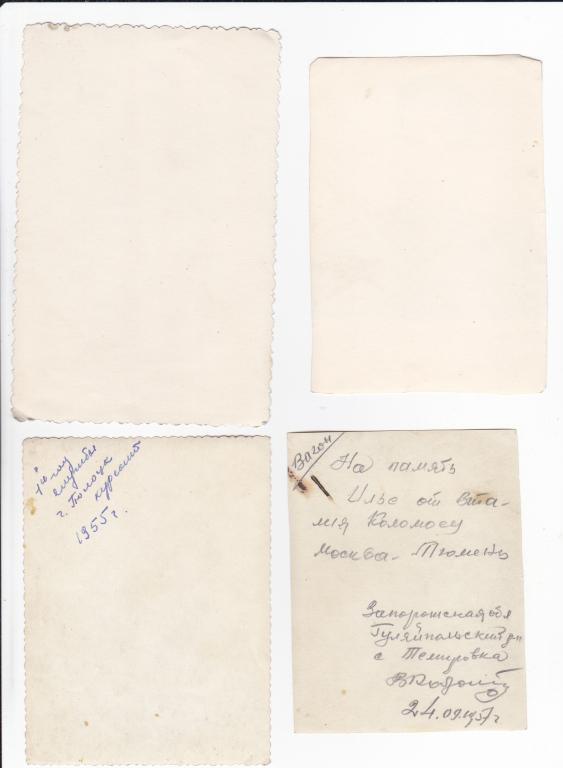 1й год
службы
г. Полоцк
курсант
1955 г.
Вагон
На память
Илье от Вита-
лия Коломосу
Москва - Тюмень
Запорожская обл
Гуляйпольский р-н
с Темировка
24.09.1957 г